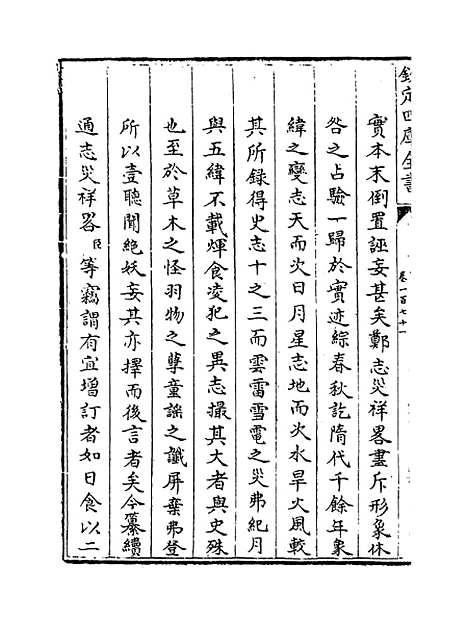 欽定四庫全書
卷一百七十一
實本末倒置誣妄甚矣鄭志災祥畧畫斥形象休
咎之占驗一歸於實迹綜春秋訖隋代千餘年象
緯之變志天而災日月星志地而災水旱火風較
其所錄得史志十之三而雲雷雪電之災弗紀月
與五緯不載煇食凌犯之異志撮其大者與史殊
也至於草木之怪羽物之孽童謡之讖屏棄弗登
所以壹聽聞絶妖妄其亦擇而後言者矣今纂續
通志災祥畧臣等竊謂有宜增訂者如日食以二